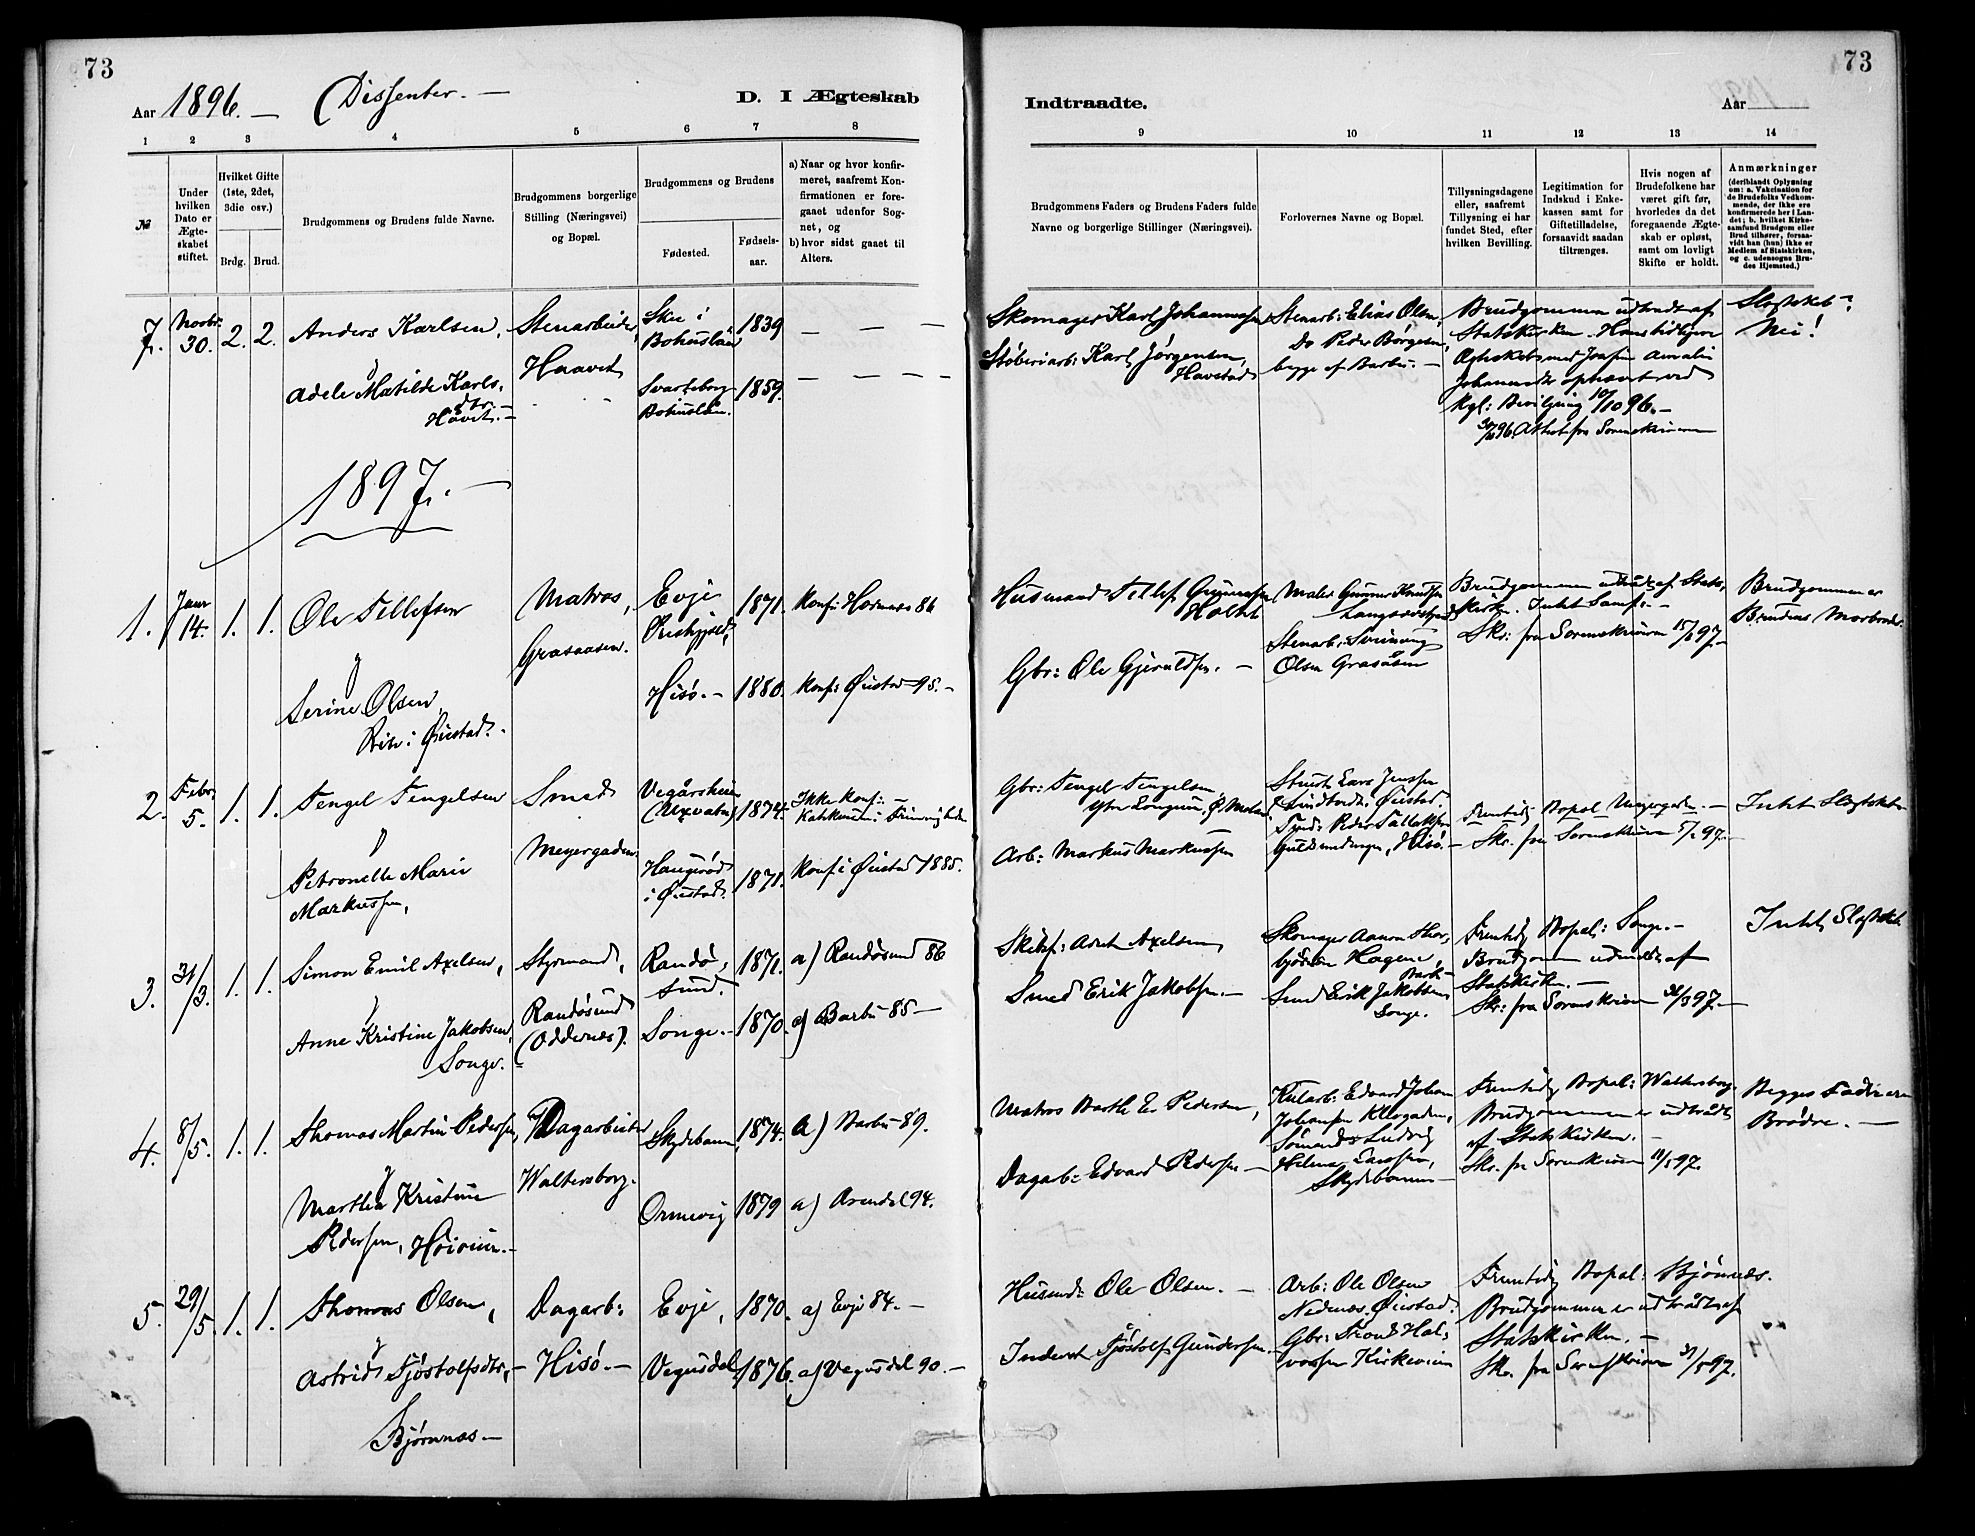 73
Aar 1896. — (Dissenter. —
D. I Ægteskab
1 2 3 4 5 6 7 8
№
Under hvilken Dato er Ægteskabet stiftet.
Hvilket Gifte (1ste, 2det, 3die osv.)
Brdg. Brud.
Brudgommens og Brudens fulde Navne.
Brudgommens borgerlige Stilling (Næringsvei) og Bopæl.
Brudgommens og Brudens
Fødested.
Fødselsaar.
a) Naar og hvor konfir-
meret, saafremt Kon-
firmationen er fore-
gaaet udenfor Sog-
net, og
b) hvor sidst gaaet til
Alters.
7. Novbr. 30. 2. 2. Anders Karlsen, Stenarbeider, Skee i Bohuslän 1839 — — —
& Adele Matilde Karlsdtr. Håvet. — Haavet Svarteborg Bohuslän. 1859. — — — —
1897. —
1. Janr 14. 1. 1. Ole Tellefsen Matros, Grasaasen. Evje Præstegjeld, 1871. Konf: Hornnes 86
& Serine Olsen, i Øiestad. Hisø. — 1880. Konf: Øiestad 95. —
2. Febr. 5. 1. 1. Tengel Tengelsen Smed Vegårsheien (Uxvatn) 1874. Ikke konf:
& Petronelle Marie Markussen, Meyergaden. Haugerød i Øiestad. 1871. Konf: i Øiestad 1885.
3. 31/3. 1. 1. Simon Emil Axelsen, Styrmand, Randøsund. 1871. a) Randøsund 86
& Anne Kristine Jakobsen, Songe. Randøsund (Oddernes). Songe. — 1870. a) Barbu 85 —
4. 8/5. 1. 1. Thomas Martin Pedersen, Dagarbeider Skydebanen, 1874. a) Barbu 89.
& Marthea Kristine Pedersen, Waltersborg. Ormevig 1879 a) Arendal 94.
5. 29/5. 1. 1. Thomas Olsen, Dagarb: Evje, 1870. a) Evje 84. —
& Astrid Tjøstolfsdtr, — Hisø. — Vegusdal, 1876. a) Vegusdal 90. —
Bjørnnæs —
73
Indtraadte.
Aar
9 10 11 12 13 14
Brudgommens Faders og Brudens Faders fulde Navne og borgerlige Stillinger (Næringsvei).
Forlovernes Navne og Bopæl.
Tillysningsdagene eller, saafremt Tillysning ei har fundet Sted, efter hvilken Bevilling.
Legitimation for Indskud i Enkekassen samt for Giftetilladelse, forsaavidt saadan tiltrænges.
Hvis nogen af Brudefolkene har været gift før, hvorledes da det foregaaende Ægteskab er opløst, samt om lovligt Skifte er holdt.
Anmærkninger
(deriblandt Oplysning om: a. Vakcination for de Brudefolks Vedkommende, der ikke ere konfirmerede her i Landet; b. hvilket Kirkesamfund Brudgom eller Brud tilhører, forsaavidt han (hun) ikke er Medlem af Statskirken, og c. udensogns Brudes Hjemsted.)
Skomager Karl Johannesen
Støberiarb: Karl Jørgensen, Havstad
Stenarb: Elias Olsen,
Do Peder Børgesen,
begge af Barbu. —
Brudgommen udtraadt af
Statskirken. Hans tidligere
Ægteskab med
ophævet ved
Kgl: Bevilgning 10/10 96. —
Attest fra Sorenskriveren
Slægtskab?
Nei!
Husmand Tellef Gunnarsen Holtet
Gbr: Ole Gjeruldsen. —
Maler Gunnar Knudsen
Stenarb:
Olsen Gråsåsen
Brudgommen udtrådt af Statskirken.
Skr: fra Sorenskriveren 15/1 97. —
Brudgommen er
Brudens Morbroder.
Gbr: Tengel Tengelsen,
Arb: Markus Markussen
Lars Jensen
Øiestad.
Peder Tallaksen
Guldsmedengen, Hisø. —
Fremtidig Bopæl Meyergaden. —
Skr. fra Sorenskriveren 5/2 97. —
Intet Slægtskab
Axelsen,
Smed Erik Jakobsen. —
Skomager Aanon Thorbjørnsen Hagene, Barbu —
Smed Erik Jakobsen, Songe.
Fremtidig Bopæl: Songe. —
Brudgommen udmeldt af
Statskirken. —
Skr: fra Sorenskriveren 31/3 97. —
Intet Slægtskab
Matros Pedersen,
Dagarb: Edvard Pedersen —
Kularb: Edvard Johan
Johansen
Sømand Ludvig
Skydebanen —
Fremtidig Bopæl: Waltersborg.
Brudgommen er udtrådt
af Statskirken. —
Skr. fra Sorenskriveren 11/5 97.
Begges Fædre ere
Brødre. —
Husmd: Ole Olsen. —
Inderst Tjøstolf Gundersen. —
Arb: Ole Olsen
Nedenæs, Øiestad.
Gbr: Trond Halvorsen
Fremtidig Bopæl: Bjørnnæs.
Brudgommen er udtrådt af
Statskirken. —
Skr. fra Sorenskriveren 31/5 97.